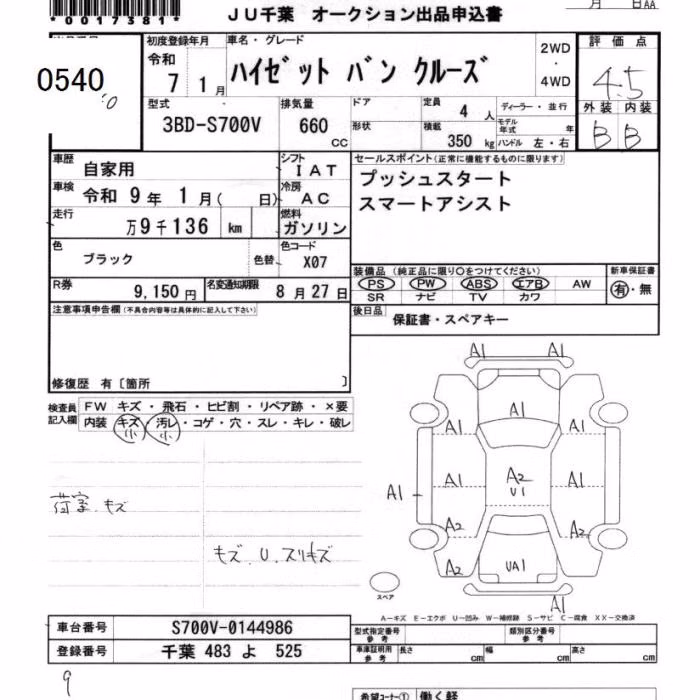 *0017381*
JU千葉 オークション出品申込書
月 日AA
0540
初度登録年月
令和
7 1月
車名・グレード
ハイゼット バン クルーズ
2WD
・
4WD
評価点
4.5
外装 内装
B B
型式
3BD-S700V
排気量
660
CC
ドア
形状
定員
4 人
積載
350 kg
ディーラー・並行
モデル年式 年
ハンドル 左・右
車歴
自家用
シフト
IAT
車検
令和 9年 1月( 日)
冷房
AC
走行
万9千136 km
燃料
ガソリン
色
ブラック
色替
色コード
X07
R券
9,150円
名変通知期限
8月27日
セールスポイント(正常に機能するものに限ります)
プッシュスタート
スマートアシスト
装備品(純正品に限り○をつけてください)
PS PW ABS エアB AW
SR ナビ TV カワ
新車保証書
有・無
後日品
保証書・スペアキー
注意事項申告欄(不具合内容等は具体的に記入して下さい)
修復歴 有〔箇所 〕
検査員記入欄
FW キズ・飛石・ヒビ割・リペア跡・×要
内装 キズ・汚レ・コゲ・穴・スレ・キレ・破レ
小 小
荷室.キズ
キズ.U.スリキズ
A1 A1
A1
A1 A1
A1 A1 A2 U1 A1 A1
A2 A2
A2 UA1
A1
スペア
A-キズ E-エクボ U-凹み W-補修跡 S-サビ C-腐食 XX-交換済
車台番号 S700V-0144986
登録番号 千葉 483 よ 525
型式指定番号参考
類別区分番号参考
車庫証明用参考 長さ cm 幅 cm 高さ cm
9
希望コーナー① 働く軽